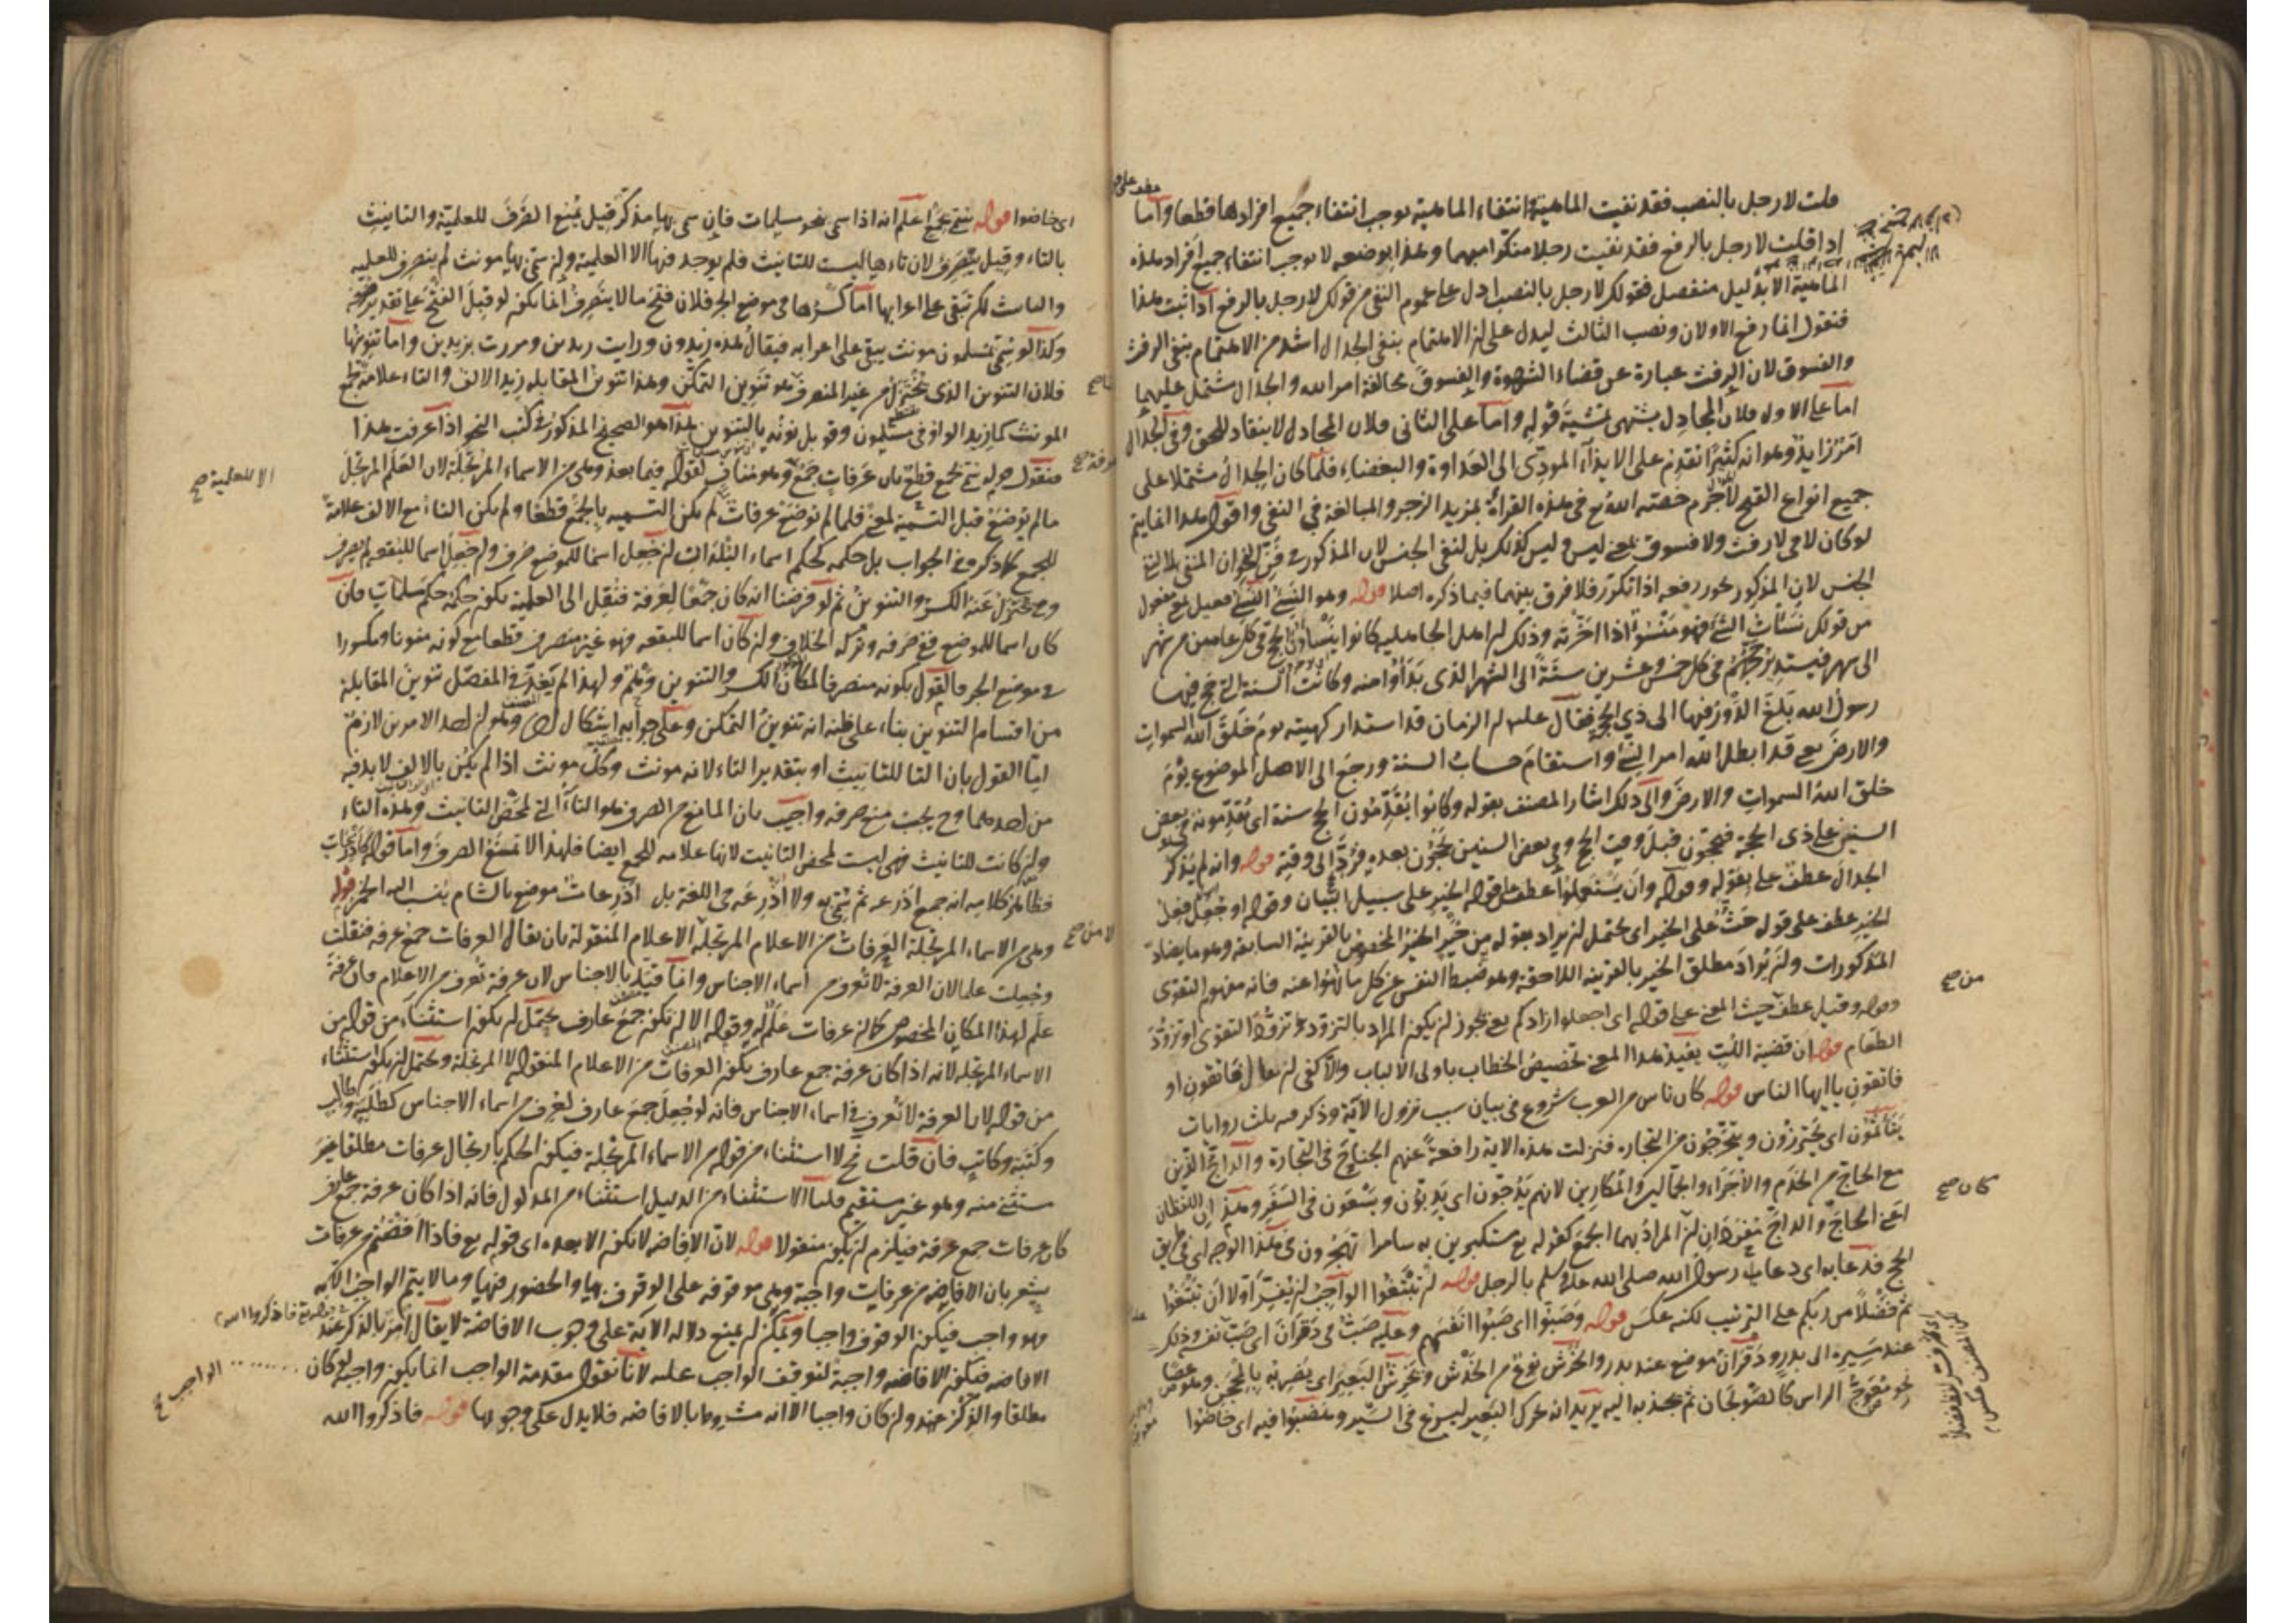 قلت لا رجل بالنصب فقد نفيت الماهية وانتفاء الماهية يوجب انتفاء جميع افرادها قطعا واما
اذا قلت لا رجل بالرفع فقد نفيت رجلا منكرا مبهما وهذا بوضعه لا يوجب انتفاء جميع افراد هذه
الماهية الا بدليل منفصل فقولك لا رجل بالنصب ادل على عموم النفي من قولك لا رجل بالرفع اذا ثبت هذا
فنقول انما رفع الاولان ونصب الثالث ليدل على ان الاهتمام بنفي الجدال اشد من الاهتمام بنفي الرفث
والفسوق لان الرفث عبارة عن قضاء الشهوة والفسوق مخالفة امر الله والجدال مشتمل عليهما
اما على الاول فلان المجادل يشتهي تمشية قوله واما على الثاني فلان المجادل لا ينقاد للحق وفي الجدال
امر زايد وهو انه كثيرا تقدم على الايذاء المودي الى العداوة والبغضاء فلما كان الجدال مشتملا على
جميع انواع القبح لا جرم خصه الله تع في هذه القراة بمزيد الزجر والمبالغة في النفي واقول هذا انما يتم
لو كان لا في لا رفث ولا فسوق بمعنى ليس وليس كذلك بل لنفي الجنس لان المذكور في النحو ان المنفي بلا التي
الجنس لان المذكور يجوز رفعه اذا تكرر فلا فرق بينهما فيما ذكره اصلا قوله وهو النسئ النسئ فعيل بمعنى مفعول
من قولك نسأت الشئ فهو منسوء اذا اخرته وذلك ان اهل الجاهليه كانوا ينسأون الحج في كل عامين من شهر
الى شهر فيستدير حجهم في كل خمس وعشرين سنة الى الشهر الذي بدأوا منه وكانت السنة التي حج فيها
رسول الله بلغ الدور فيها الى ذي الحجة فقال علسلم الزمان قد استدار كهيئته يوم خلق الله السموات
والارض يعني قد ابطل الله امر النسئ واستقام حساب السنة ورجع الى الاصل الموضوع يوم
خلق الله السموات والارض والى ذلك اشار المصنف بقوله وكانوا يقدمون الحج سنة اي يقدمونه في بعض
السنين على ذي الحجة فيحجون قبل وقت الحج وفي بعض السنين يحجون بعده فرد الى وقته قوله وانه لم يذكر
الجدال عطف على بقوله وقوله وان يستعملوا عطف على قوله الخير على سبيل البيان وقوله او جعل فعل
الخير عطف على قوله حث على الخير اي يحتمل ان يراد بقوله من خير الخير المخصوص بالقرينة السابقة وهو ما يضاد
المذكورات وان يراد مطلق الخير بالقرينه اللاحقة وهو ضبط النفس عن كل ما نهوا عنه فانه مفهوم التقوى
وقوله وقيل عطف حيث المعنى على قوله اي اجعلوا زادكم يعني يجوز ان يكون المراد بالتزود تزود التقوى او تزود
الطعام قوله ان قضية اللب يفيد هذا المعنى تخصيص الخطاب باولي الالباب والا كفى ان يقال فاتقون او
فاتقون يا ايها الناس قوله كان ناس من العرب شروع في بيان سبب نزول الآية وذكر فيه ثلث روايات
يتأثمون اي يحترزون ويتحرجون من التجارة فنزلت هذه الاية رافعة عنهم الجناح في التجارة والداج الذين
مع الحاج من الخدم والاجراء والجمالين والمكارين لانهم يدجون اي يدبون ويسعون في السفر وهذان اللفظان
اعني الحاج والداج مفردان لان المراد بهما الجمع كقوله تع مستكبرين به سامرا تهجرون في هذا الوجه اي في طريق
الحج فدعا به اي دعا رسول الله صلى الله علىه وسلم بالرجل قوله ان تبتغوا الواجب ان يفسر اولا ان تبتغوا
ثم فضلا من ربكم على الترتيب لكنه عكس قوله وصبوا اي صبوا انفسهم وعليه صب في دقران اي صب نفسه وذلك
عند سيره الى بدر ودقران موضع عند بدر والخرش نوع من الخدش وخرش البعير اي يضربه بالمحجن وهو عصا
معوج الراس كالصولجان ثم يجذبه اليه يريد انه يحرك البعير ليسرع في السير وهضبوا فيه اي خاضوا
من صح
كان صح
اي خاضوا قوله تنتحي بجمع اعلم انه اذا سمي نحو مسلمات فان سمي بها مذكر قيل يمنع الصرف للعلمية والتانيث
بالتاء وقيل ينصرف لان تاءها ليست للتانيث فلم يوجد فيها الا العلمية وان سمي بها مونث لم ينصرف للعلميه
والتانيث لكن تبقى على اعرابها اما كسرها في موضع الجر فلان فتح ما لا ينصرف انما يكون لو قبل الفتح على تقدير صرفه
وكذا لو سمي بمسلمون مونث يبقى على اعرابه فيقال هذه زيدون ورايت زيدين ومررت بزيدين واما تنوينها
فلان التنوين الذي يختزل من غير المنصرف هو تنوين التمكن وهذا تنوين المقابله زيد الالف والتاء علامة لجمع
المونث كما زيد الواو في مسلمون وقوبل نونه بالتنوين هذا هو الصحيح المذكور في كتب النحو اذا عرفت هذا
فنقول قوله سمي بجمع قطع بان عرفات جمع وهو مناف لقوله فيما بعد وهي من الاسماء المرتجلة لان العلم المرتجل
ما لم يوضع قبل التسمية لمعنى فلما لم توضع عرفات لم يكن التسميه بالجمع قطعا ولم يكن التاء مع الالف علامة
للجمع كما ذكر في الجواب بل حكمه كحكم اسماء البلدان ان جعل اسما للموضع صرف وان جعل اسما للبقعه لم يصرف
وح يختزل عنه الكسر والتنوين ثم لو فرضنا انه كان جمعا لعرفة فنقل الى العلمية يكون حكمه حكم مسلمات فان
كان اسما للموضع ففي صرفه وتركه الخلاف وان كان اسما للبقعه فهو غير منصرف قطعا مع كونه منونا ومكسورا
في موضع الجر فالقول بكونه منصرفا لمكان الكسر والتنوين وهم ولهذا لم يعد في المفصل تنوين المقابلة
من اقسام التنوين بناء على ظنه انه تنوين التمكن وعلى جوابه اشكال اخر وهو ان احد الامرين لازم
اما القول بان التا للتانيث او بتقدير التاء لانه مونث وكل مونث اذا لم يكن بالالف لا بد فيه
من احدهما وح يجب منع صرفه واجيب بان المانع من الصرف هو التاء التي لمحض التانيث وهذه التاء
وان كانت للتانيث فهي ليست لمحض التانيث لانها علامه للجمع ايضا فلهذا لا تمنع الصرف واما قوله كاذرعات
فظاهر كلامه انه جمع اذرعه ثم سمي به ولا اذرعه في اللغة بل اذرعات موضع بالشام ينسب اليه الخمر قوله
وهي من الاسماء المرتجلة العرفات من الاعلام المرتجلة لا الاعلام المنقولة بان يقال العرفات جمع عرفه فنقلت
وجعلت علما لان العرفة لا تعرف من اسماء الاجناس وانما قيد بالاجناس لان عرفة تعرف من الاعلام فان عرفة
علم لهذا المكان المخصوص كما ان عرفات علم له وقوله الا ان يكون جمع عارف يحتمل ان يكون استثناء من قوله من
الاسماء المرتجلة لانه اذا كان عرفة جمع عارف يكون العرفات من الاعلام المنقولة لا المرتجلة ويحتمل ان يكون استثناء
من قوله لان العرفة لا تعرف في اسماء الاجناس فانه لو جعل جمع عارف لعرف من اسماء الاجناس كطلبة وطالب
وكتبة وكاتب فان قلت فح لا استثناء من قوله من الاسماء المرتجلة فيكون الحكم بارتجال عرفات مطلقا غير
مستثنى منه وهو غير مستقيم قلنا الاستثناء من الدليل استثناء من المدلول فانه اذا كان عرفة جمع عارف
كان عرفات جمع عرفة فيلزم ان يكون منقولا قوله لان الافاضه لا تكون الا بعده اي قوله تع فاذا افضتم من عرفات
يشعر بان الافاضه من عرفات واجبة وهي موقوفه على الوقوف بها والحضور فيها وما لا يتم الواجب الا به
وهو واجب فيكون الوقوف واجبا ويمكن ان يمنع دلالة الآية على وجوب الافاضة لا يقال امر بالذكر عند
الافاضه فتكون الافاضه واجبة لتوقف الواجب عليه لانا نقول مقدمة الواجب انما يكون واجبه لو كان
مطلقا والذكر عند وان كان واجبا الا انه مشروط بالافاضه فلا يدل على وجوبها قوله فاذكروا الله
الا للعلمية صح
لا من صح
الواجب